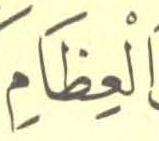 الْعِظَامِ